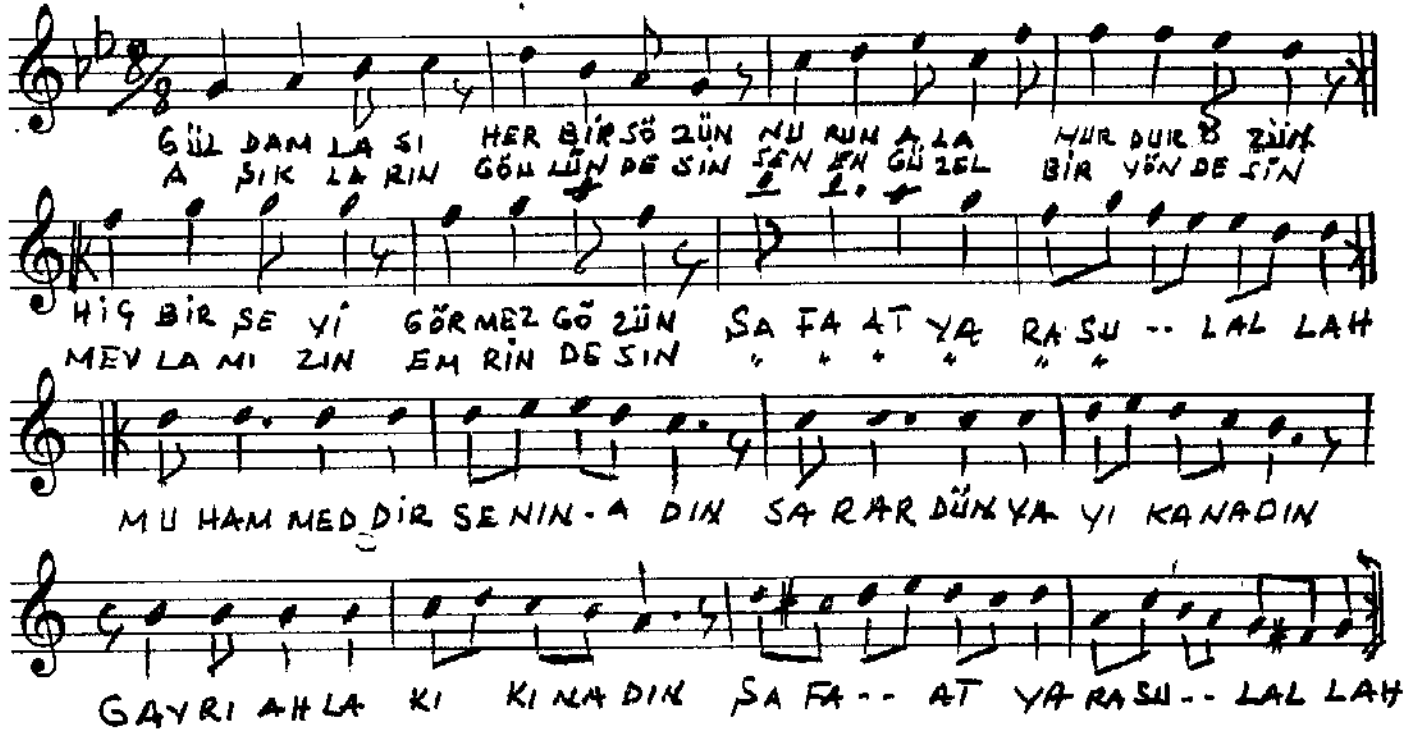 8/8
GÜL DAM LA SI HER BİR SÖ ZÜN NU RUN A LA NUR DUR Ö ZÜN
A ŞIK LA RIN GÖN LÜN DE SİN SEN EN GÜ ZEL BİR YÖN DE SİN
HİÇ BİR ŞE Yİ GÖR MEZ GÖ ZÜN ŞA FA AT YA RA SU -- LAL LAH
MEV LA MI ZIN EM RİN DE SIN " " " " " "
MU HAM MED DİR SE NIN - A DIN SA RAR DÜN YA YI KA NA DIN
GAY RI AH LA KI KI NA DIN ŞA FA -- AT YA RA SU -- LAL LAH